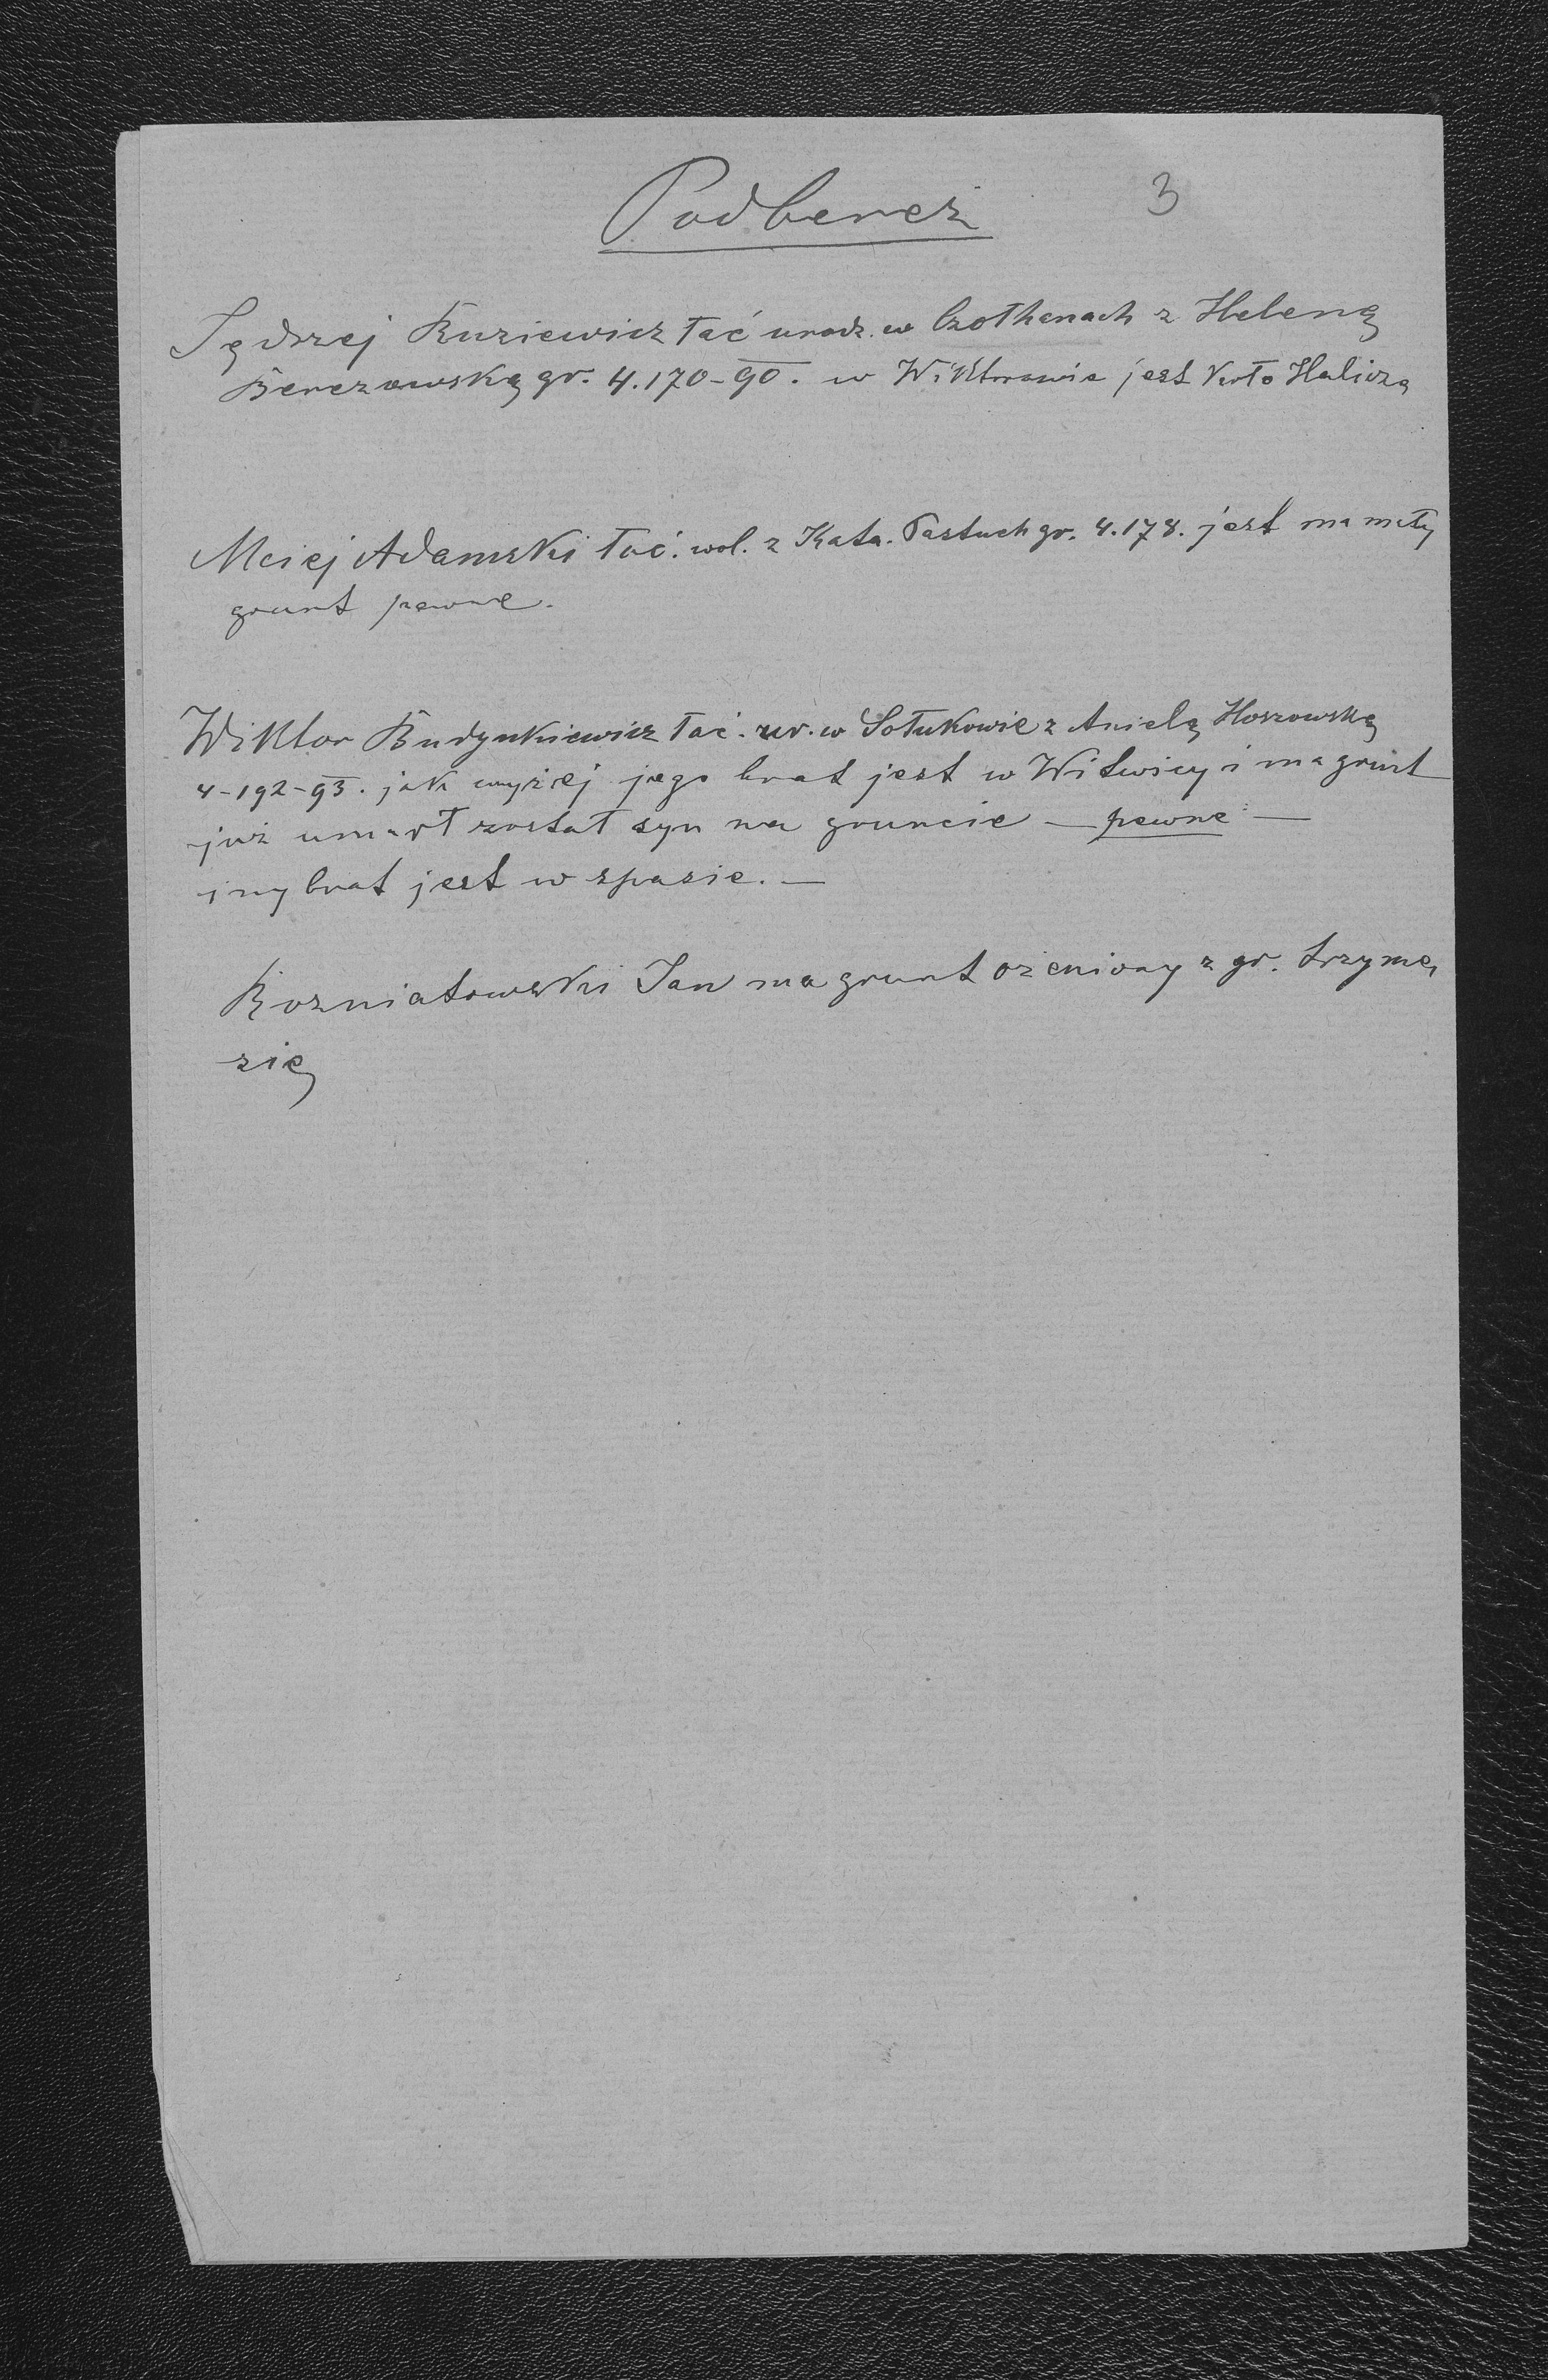 Podbereż
3
Jędrzej Kuziewicz łać urodz. w Czołhanach z Heleną
Berezowską gr. 4.170-90. w Wiktorowie jest koło Halicza
Maciej Adamski łać. wol. z Kata. Pastuch gr. 4.178. jest ma mały
grunt pewne.
Wiktor Budynkiewicz łać. ur. w Sołukowie z Anielą Hoszowską
4-192-93. jak wyżej jego brat jest w Witwicy i ma grunt
już umarł został syn na gruncie — pewne —
iny brat jest w spasie. —
Rozniatowski Jan ma grunt ożeniony z gr. trzyma
się